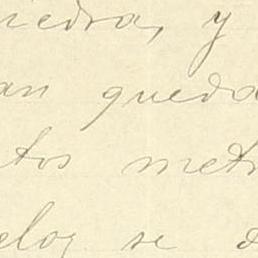 piedra, y
an queda
tos metr
eloz se d